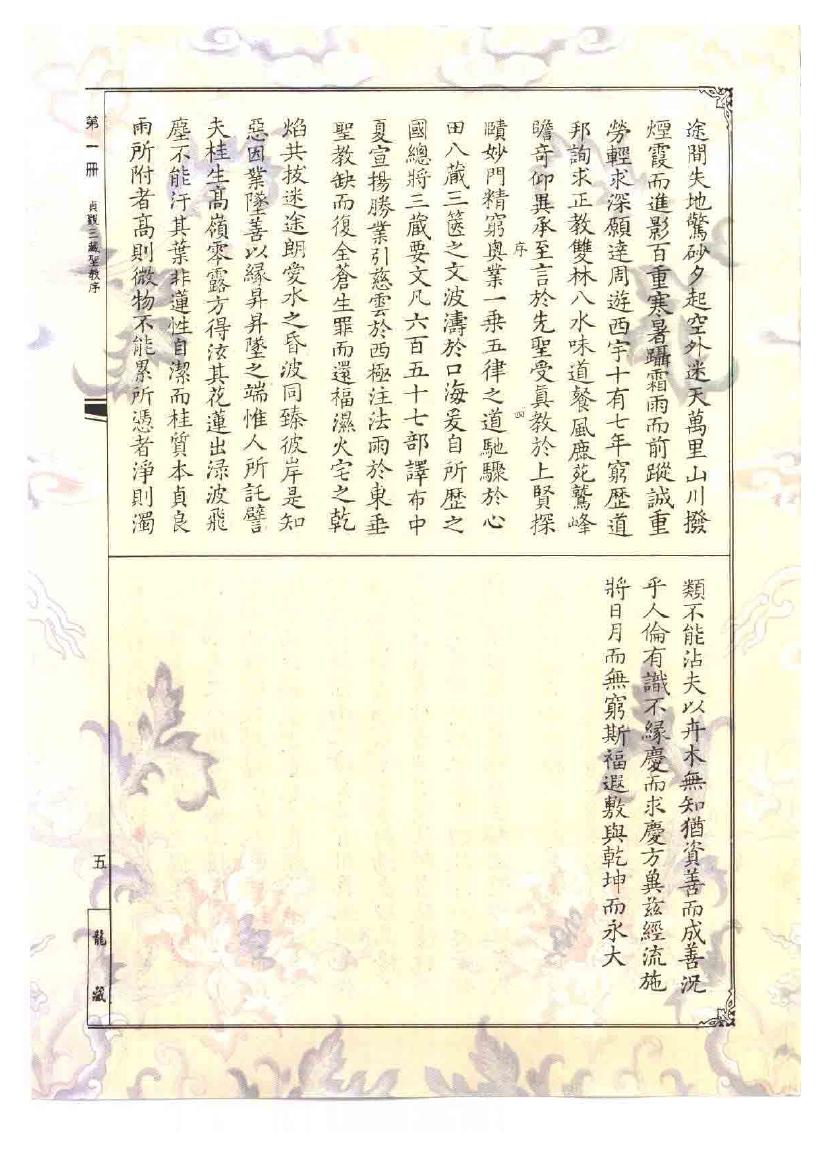 途間失地驚砂夕起空外迷天萬里山川撥
煙霞而進影百重寒暑躡霜雨而前蹤誠重
勞輕求深願達周遊西宇十有七年窮歷道
邦詢求正教雙林八水味道餐風鹿苑鷲峰
瞻奇仰異承至言於先聖受真教於上賢探
序
四
賾妙門精窮奧業一乗五律之道馳驟於心
田八藏三篋之文波濤於口海爰自所歷之
國總將三藏要文凡六百五十七部譯布中
夏宣揚勝業引慈雲於西極注法雨於東垂
聖教缺而復全蒼生罪而還福濕火宅之乾
焰共拔迷途朗愛水之昏波同臻彼岸是知
惡因業墜善以緣昇昇墜之端惟人所託譬
夫桂生高嶺零露方得泫其花蓮出淥波飛
塵不能汙其葉非蓮性自潔而桂質本貞良
由所附者高則微物不能累所憑者淨則濁
類不能沾夫以卉木無知猶資善而成善況
乎人倫有識不緣慶而求慶方冀茲經流施
將日月而無窮斯福遐敷與乾坤而永大
第一冊
貞觀三藏聖教序
五
龍藏